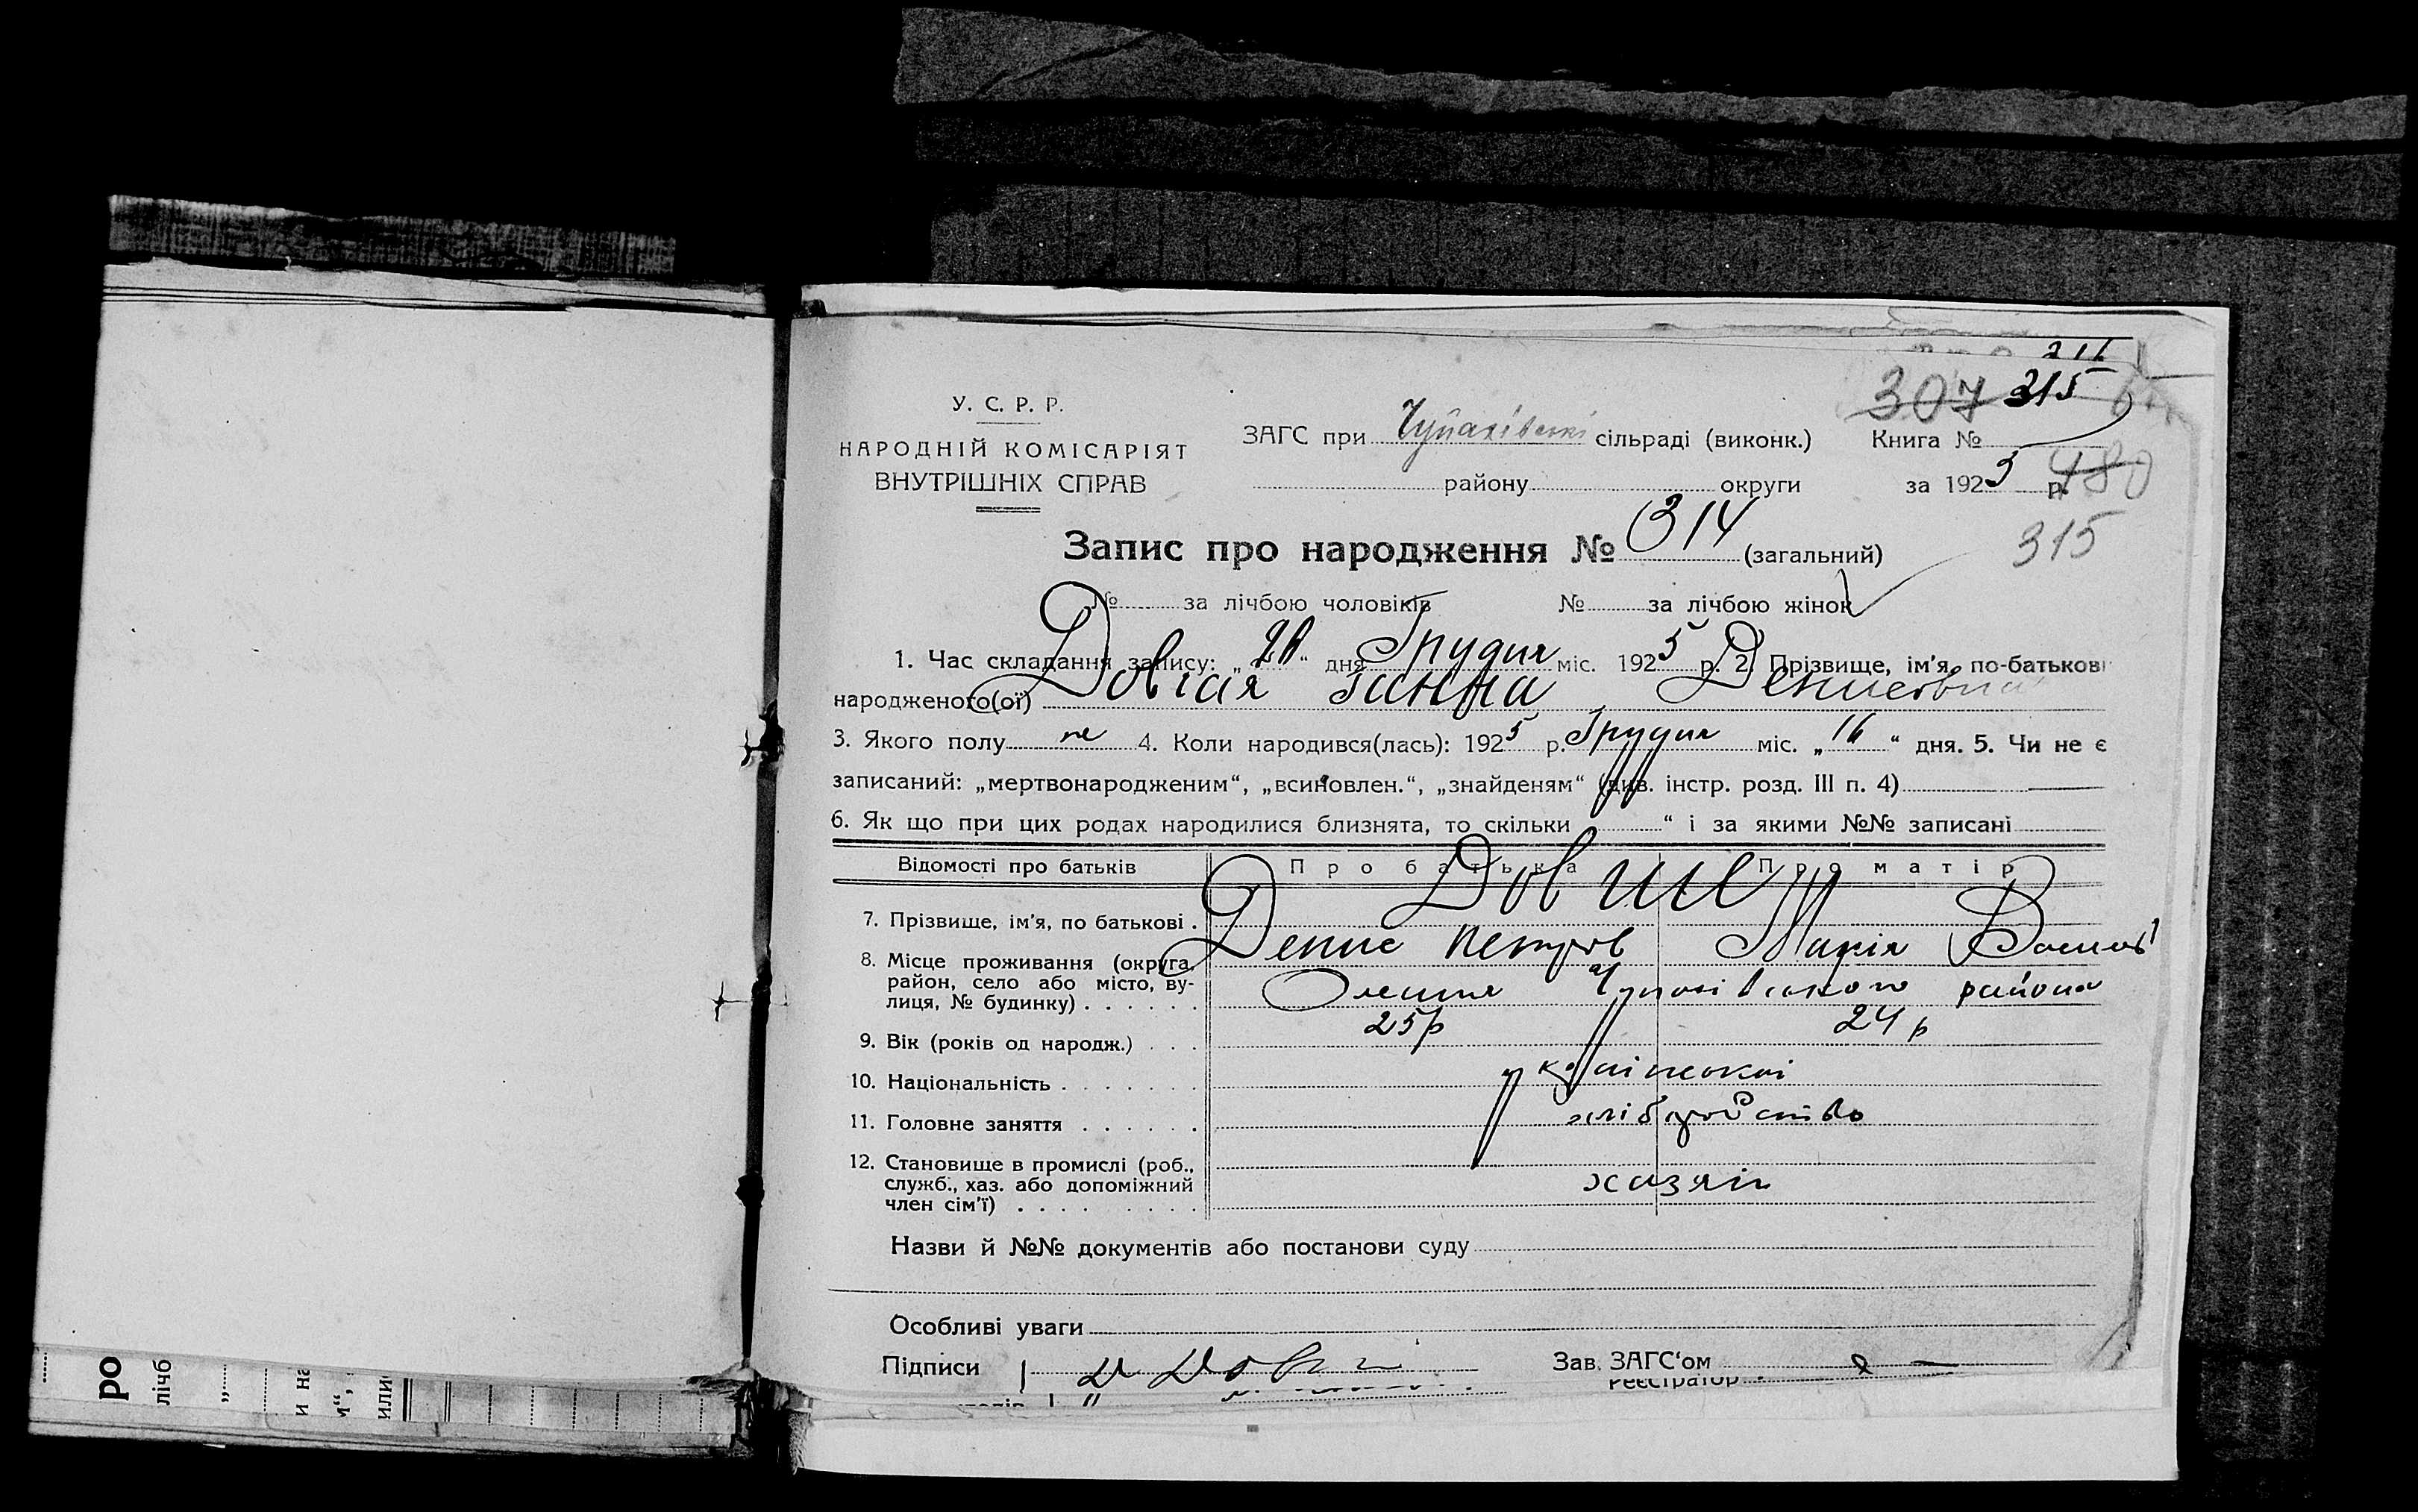 315
307 315
У. С. Р. Р.
НАРОДНІЙ КОМІСАРІЯТ
ВНУТРІШНІХ СПРАВ
ЗАГС при Чупахівські сільраді (виконк.) Книга №
району округи за 1925 р. 480
315
Запис про народження № 314 (загальний)
№ за лічбою чоловіків № за лічбою жінок
1. Час складання запису: „ “ дня Грудня міс. 1925 р. 2. Прізвище, ім'я, по-батькові
народженого(ої) Ганна Денисовна
3. Якого полу 4. Коли народився(лась): 1925 р. Грудня міс. „16“ дня. 5. Чи не є
записаний: „мертвонародженим“, „всиновлен.“, „знайденям“ (див. інстр. розд. III п. 4)
6. Як що при цих родах народилися близнята, то скільки “ і за якими №№ записані
Відомості про батьків Про батька Про матір
7. Прізвище, ім'я, по батькові .
Денис Петров Марія
8. Місце проживання (округа,
район, село або місто, ву-
лиця, № будинку) . . . . . . Чупахівського района
25р 24 р
9. Вік (років од народж.) . . .
10. Національність . . . . . . . українські
11. Головне заняття . . . . . . хліборобство
12. Становище в промислі (роб.,
служб., хаз. або допоміжний
член сім'ї) . . . . . . . . хазяін
Назви й №№ документів або постанови суду
Особливі уваги
Підписи Зав. ЗАГС'ом
Реєстратор
ро
лічб
и на
м“,
или